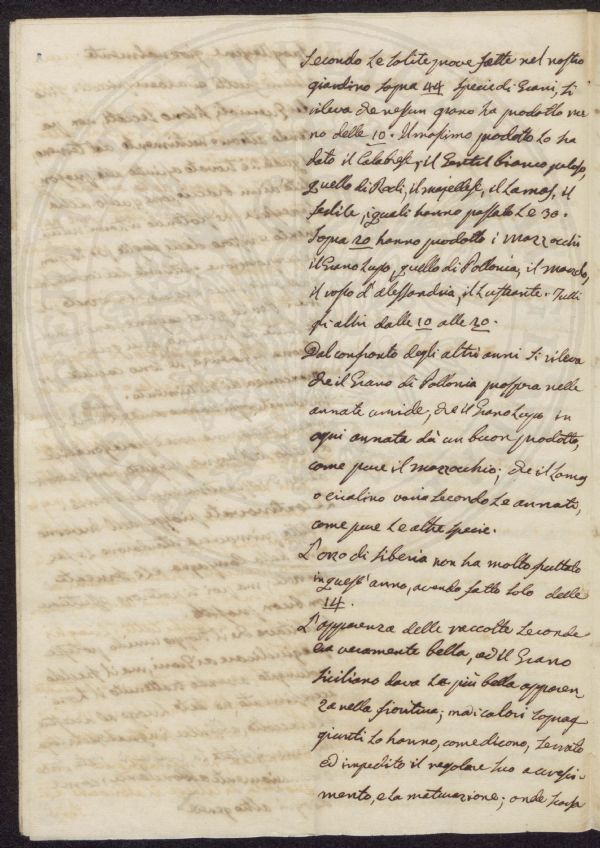 Secondo le solite prove fatte nel nostro
giardino sopra 44 specie di Grani, si
rileva che nessun grano ha prodotto me
no delle 10. Il massimo prodotto lo ha
dato il Calabrese, il Gentil bianco peloso,
quello di Rodi, il majellese, il Lamas, il
fertile, i quali hanno passato le 30.
Sopra 20 hanno prodotto i Mazzocchi
il Grano Lupo, quello di Pollonia, il
il rosso d'alessandria, il Lustrante. Tutti
gli altri dalle 10 alle 20.
Dal confronto degli altri anni si rileva
che il Grano di Pollonia prospera nelle
annate umide; che il Grano Lupo in
ogni annata dà un buon prodotto,
come pure il mazzocchio; che il Lamas
o cicalino varia secondo le annate,
come pure le altre specie.
L'orzo di Siberia non ha molto fruttato
in quest'anno, avendo fatto solo delle
14.
L'apparenza delle raccolte seconde
era veramente bella, ed il Grano
Siciliano dava la più bella apparen
za nella fioritura; ma i calori soprag
giunti lo hanno, come dicono, serrato
ed impedito il regolare suo accresci-
mento, e la maturazione; onde scarsa